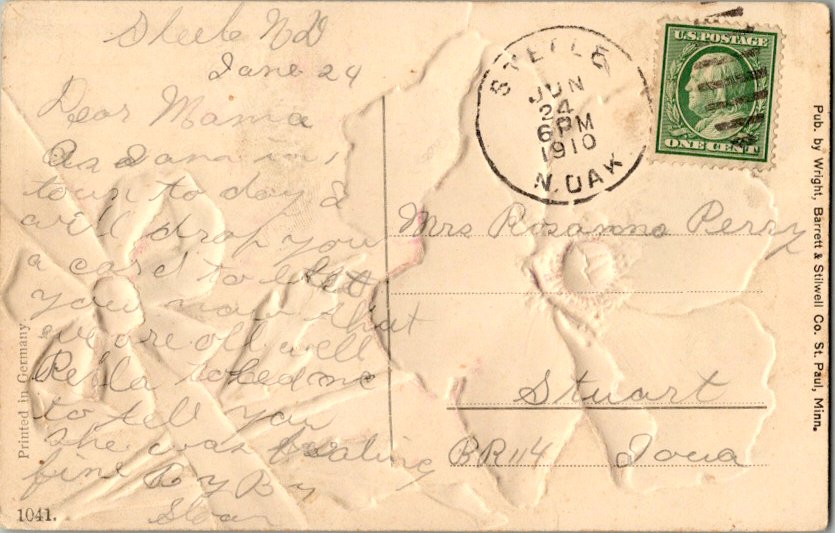 Steele ND
June 24
Dear Mama
As I am in
town to day I
will drop you
a card to let
you now that
we are all well
to tell you
She was
fine By By
Printed in Germany.
1041.
STEELE
JUN
24
6 PM
1910
N. DAK.
U.S. POSTAGE
ONE CENT
Mrs Rosanna Perry
Stuart
Iowa
Pub. by Wright, Barrett & Stilwell Co. St. Paul, Minn.